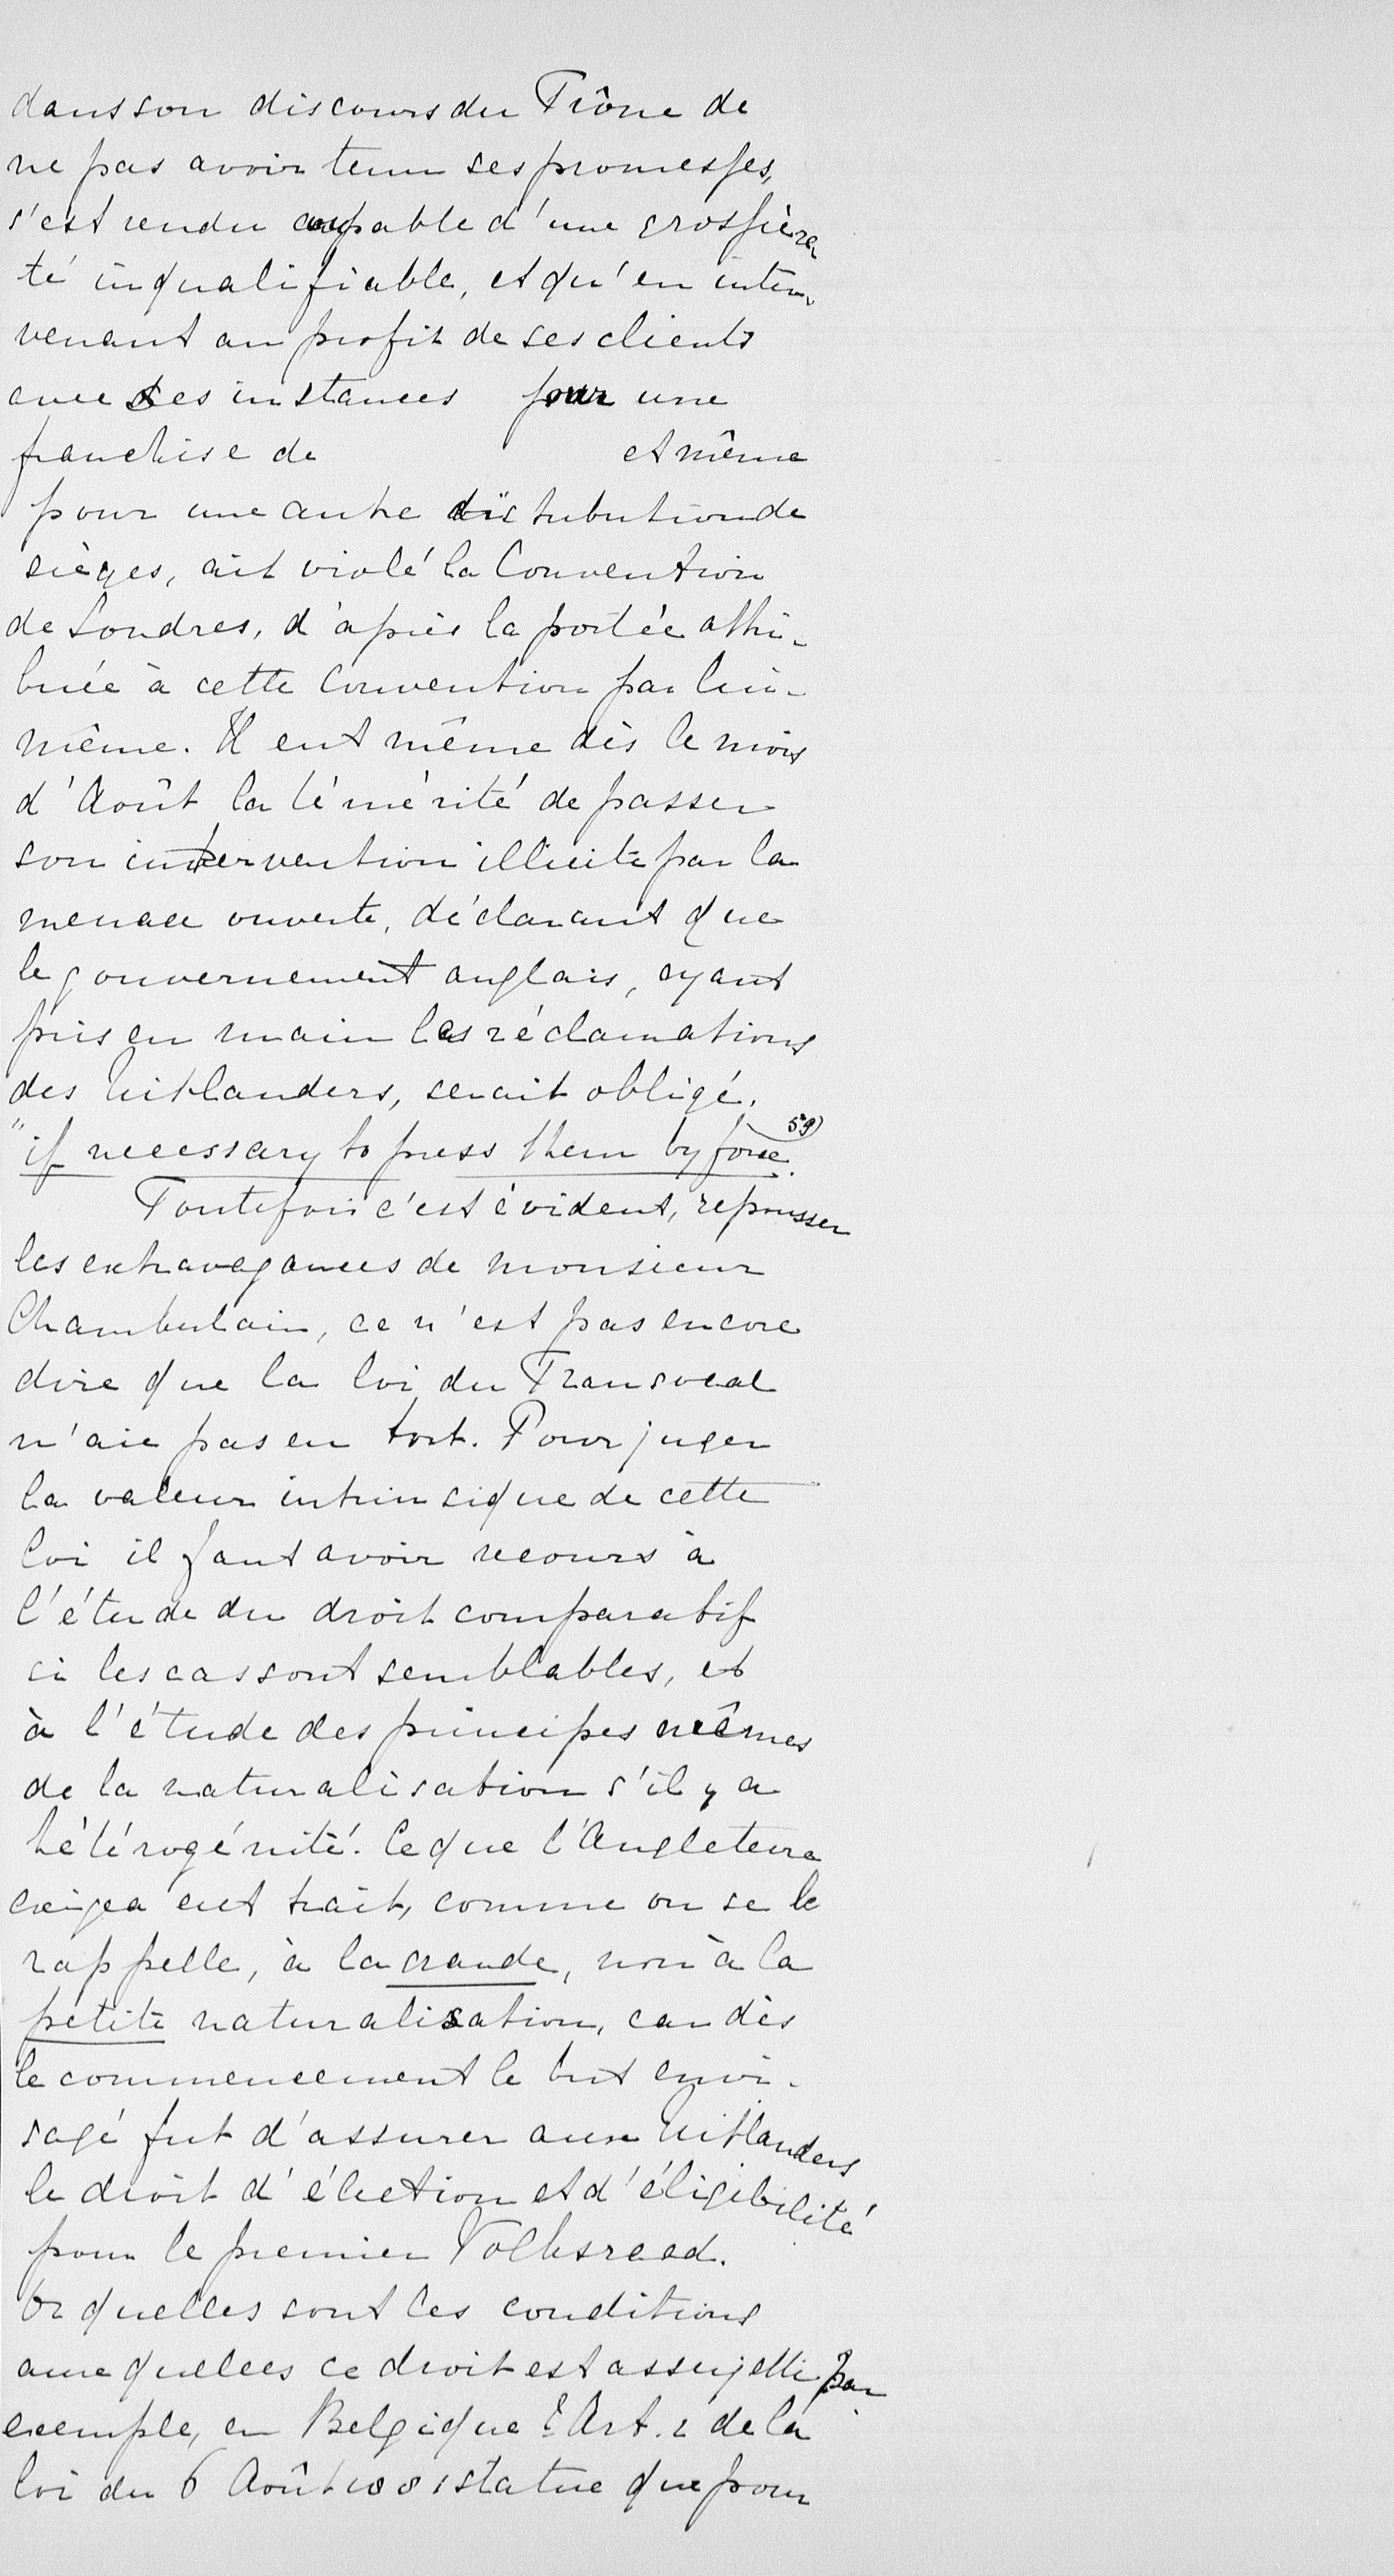 dans son discours du Trône de
ne pas avoir tenu ses promesses,
s'est rendu coupable d'une grossière
té inqualifiable, et qu'en inter-
venant au profit de ses clients
avec ses instances pour une
franchise de et même
pour une autre distribution de
sièges, ait violé la Convention
de Londres, d'après la portée attri-
buée à cette Convention par lui-
même. Il eut même dès le mois
d'Août la témérité de passer
son intervention illicite par la
menace ouverte, déclarant que
le gouvernement anglais, ayant
pris en main les réclamations
des Uitlanders, serait obligé,
"if necessary to press them by force. 59)
Toutefois c'est évident, repousser
les extravagances de monsieur
Chamberlain, ce n'est pas encore
dire que la loi du Transvaal
n'aie pas eu tort. Pour juger
la valeur intrinsique de cette
loi il faut avoir recours à
l'étude du droit comparatif
si les cas sont semblables, et
à l'étude des principes mêmes
de la naturalisation s'il y a
hétérogénité. Ce que l'Angleterre
exigea eut trait, comme on se le
rappelle, à la grande, non à la
petite naturalisation, car dès
le commencement le but envi-
sagé fut d'assurer aux Uitlanders
le droit d'élection et d'éligibilité
pour le premier Volksraad.
Or quelles sont les conditions
auxquelles ce droit est assujetti par
exemple, en Belgique? Art. 2 de la
loi du 6 Août 1881 statue que pour